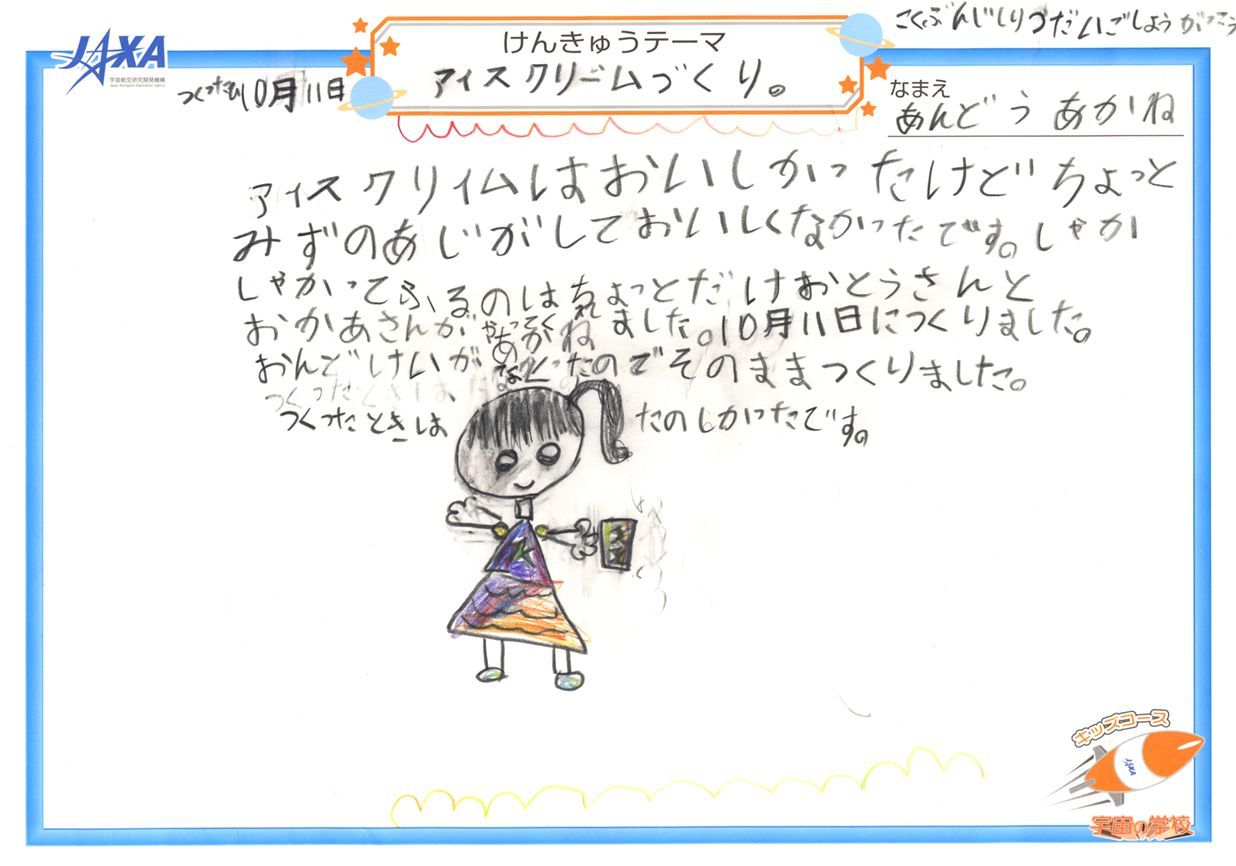 こくぶんじしりつだいごしょうがっこう
JAXA
宇宙航空研究開発機構
Japan Aerospace Exploration Agency
けんきゅうテーマ
アイスクリームづくり。
つくったひ10月11日
なまえ
あんどう あかね
アイスクリイムはおいしかったけどちょっと
みずのあじがしておいしくなかったです。しゃか
しゃかってふるのはちょっとだけおとうさんと
おかあさんがやってくれました。10月11日につくりました。
あかね
おんどけいがなくてたのでそのままつくりました。
つくったときは たのしかったです。
キッズコース
JAXA
宇宙の学校